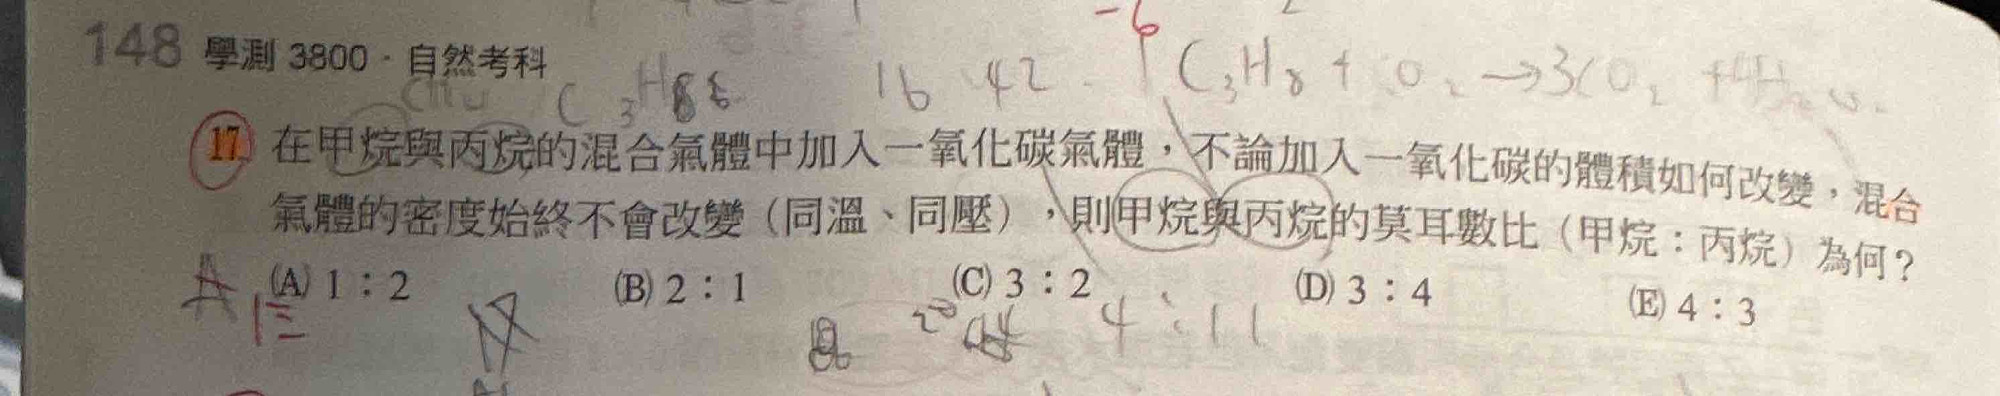 -6
148 學測 3800．自然考科
C₃H₈ 16 42 C₃H₈ + O₂ → 3CO₂ + 4H₂O
17. 在甲烷與丙烷的混合氣體中加入一氧化碳氣體，不論加入一氧化碳的體積如何改變，混合
氣體的密度始終不會改變（同溫、同壓），則甲烷與丙烷的莫耳數比（甲烷：丙烷）為何？
A (A) 1：2 (B) 2：1 (C) 3：2 (D) 3：4 (E) 4：3
4：11